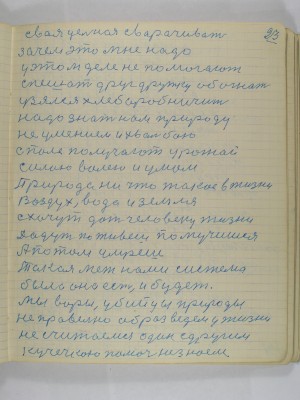 27
свая целная сварачиват
зачем это мне надо
у этом деле не помогают
спешат друг дружку обогнат
узялся хлеборобничит
надо знат нам природу
не умением и хвалбою
с поле получают урожай
силаю валею и умом
Природа ни что такое в жизни
Воздух, вода и земля
схочут дат человеку жизни
дадут поживеш помучишся
А потом умреш
Такая мет нами система
была она ест и будет.
мы воры, убийцы природы
не правелно образ ведем у жизни
не считаемся один с другим
кучечкою помоч незнаем